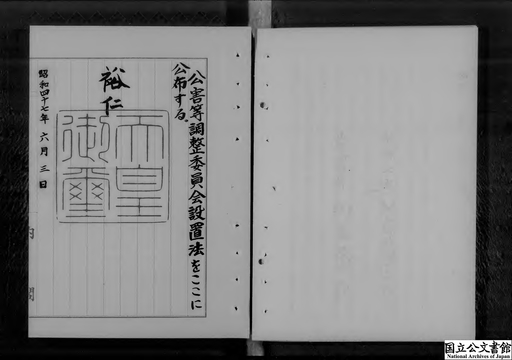 公害等調整委員会設置法をここに
公布する。
裕仁
天皇
御璽
昭和四十七年六月三日
内閣
国立公文書館
National Archives of Japan